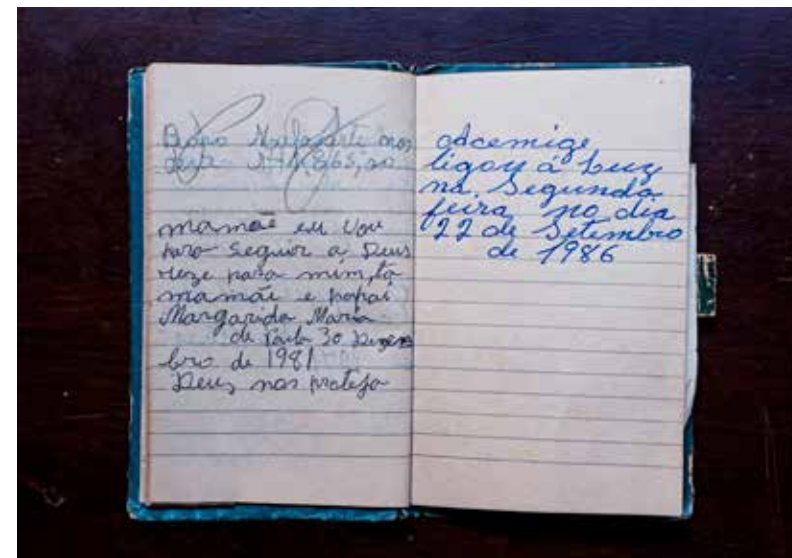 mamãe eu vou
para seguir a Deus
reze para mim, tá
mamãe e papai
Margarida Maria
de Paula 30 Dezem
bro de 1981
Deus nos proteja
Acemige
ligou á Luz
na. Segunda
feira no dia
22 de Setembro
de 1986